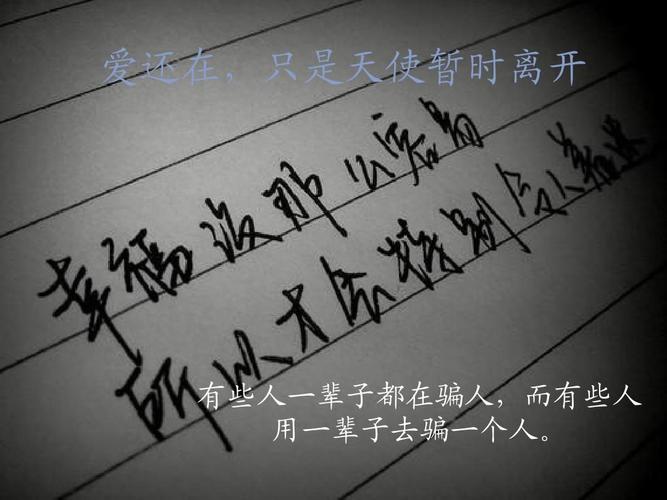 爱还在，只是天使暂时离开
幸福没那么容易
所以才会特别令人着迷
有些人一辈子都在骗人，而有些人
用一辈子去骗一个人。